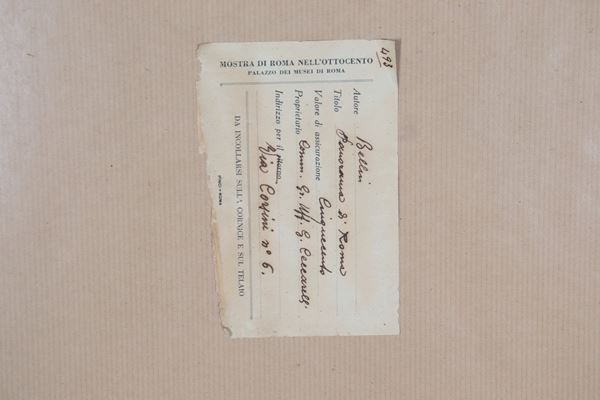 493
MOSTRA DI ROMA NELL'OTTOCENTO
PALAZZO DEI MUSEI DI ROMA
Autore Bellini
Titolo Panorama di Roma
Valore di assicurazione Cinquecento
Proprietario Comm. Gr. Uff. G. Ceccarelli
Indirizzo per il ritorno
Via Corsini n° 6.
DA INCOLLARSI SULLA CORNICE E SUL TELAIO